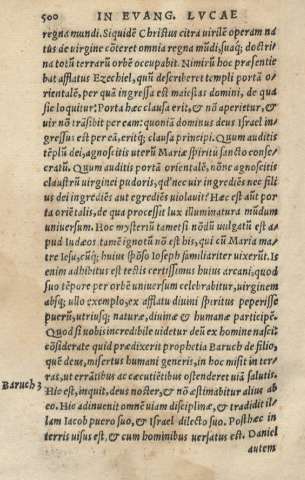 500 IN EVANG. LVCAE
regna mundi. Siquidē Christus citra virilē operam na
tus de virgine cōteret omnia regna mūdi, suaq; doctri
na totū terrarū orbē occupabit. Nimirū hoc præsentie
bat afflatus Ezechiel, quū describeret templi portā o-
rientalē, per quā ingressa est maiestas domini, de qua
sic loquitur: Porta hæc clausa erit, & nō aperietur, &
uir nō trāsibit per eam: quoniā dominus deus Israel in
gressus est per eā, eritq; clausa principi. Quum auditis
tēplū dei, agnoscitis uterū Mariæ spiritu sancto conse
cratū. Quum auditis portā orientalē, nōne agnoscitis
claustrū virginei pudoris, qd' nec uir ingrediēs nec fili
us dei ingrediēs aut egrediēs uiolauit? Hæc est aūt por
ta oriētalis, de qua processit lux illuminatura mūdum
uniuersum. Hoc mysteriū tametsi nōdū uulgatū est a-
pud Iudæos tamē ignotū nō est his, qui cū Maria ma-
tre Iesu, cūq; huius spōso Ioseph familiariter uixerūt. Is
enim adhibitus est testis certissimus huius arcani, quod
suo tēpore per orbē uniuersum celebrabitur, virginem
absq; ullo exemplo, ex afflatu diuini spiritus peperisse
puerū, utriusq; naturæ, diuinæ & humanæ participē.
Quod si uobis incredibile uidetur deū ex homine nasci:
cōsiderate quid prædixerit propheta Baruch de filio,
quē deus, misertus humani generis, in hoc misit in ter-
ras, ut errātibus ac cæcutiētibus ostenderet uiā salutis.
Baruch 3 Hic est, inquit, deus noster, & nō æstimabitur alius ab
eo. Hic adinuenit omnē uiam disciplinæ, & tradidit il-
lam Iacob puero suo, & Israel dilecto suo. Post hæc in
terris uisus est, & cum hominibus uersatus est. Daniel
autem